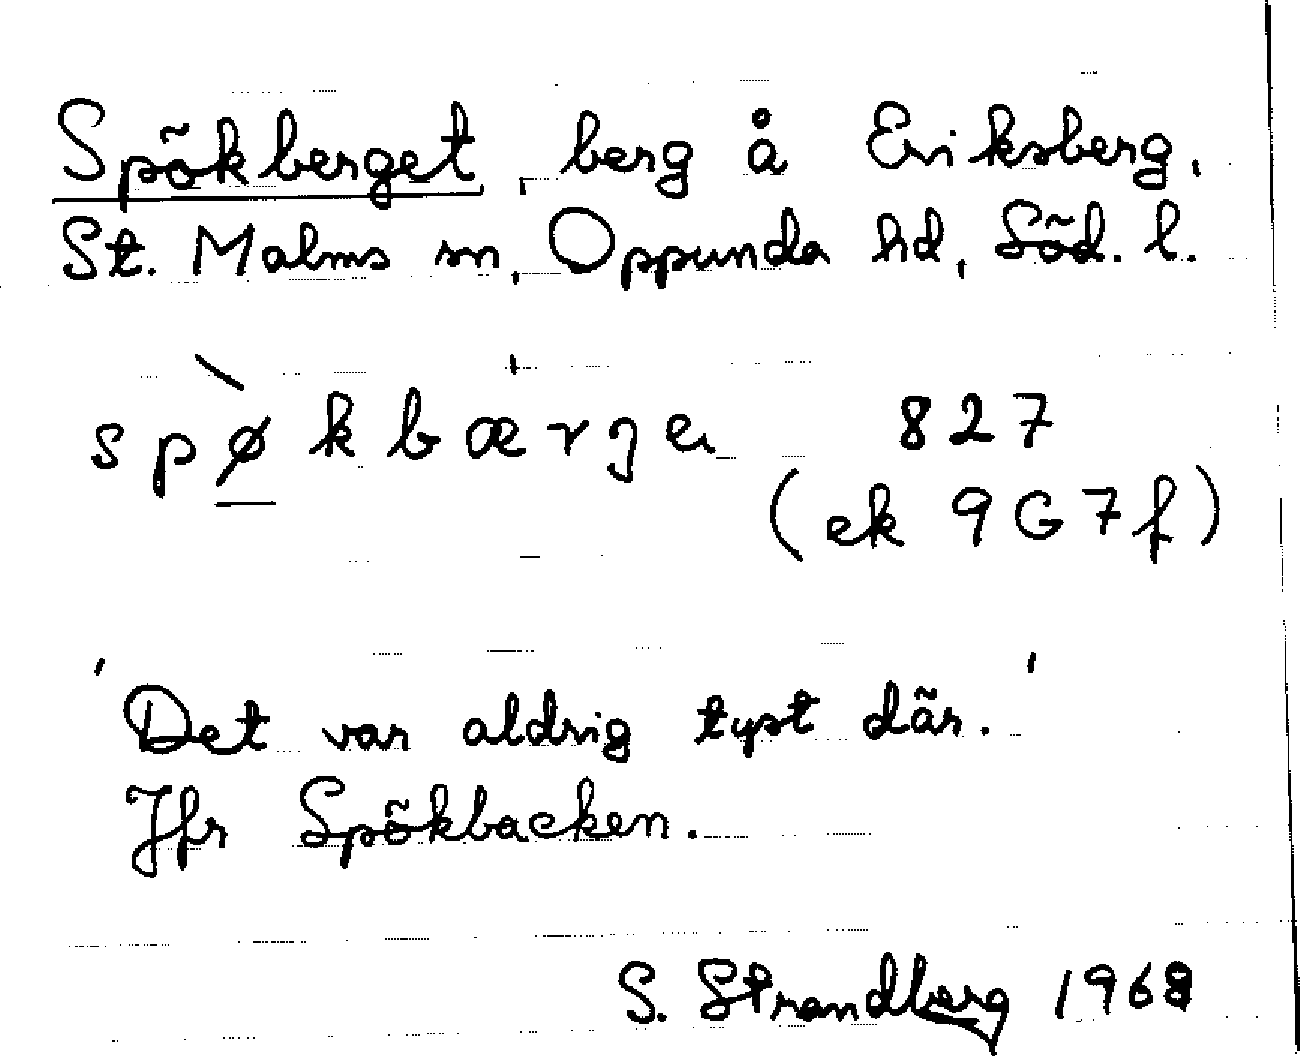 Spökberget, berg å Eriksberg,
St. Malms sn, Oppunda hd, Söd. l.
spø̀kbær̍ge 827
(ek 9G7f)
'Det var aldrig tyst där.'
Jfr Spökbacken.
S. Strandberg 1968